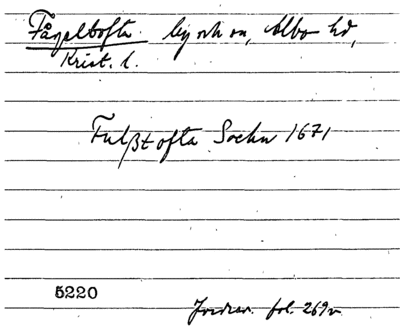 Fågeltofta by och sn, Albo hd,
Krist. l.
Fulßtofta Sochn 1671
5220
Jordrev. fol. 269v